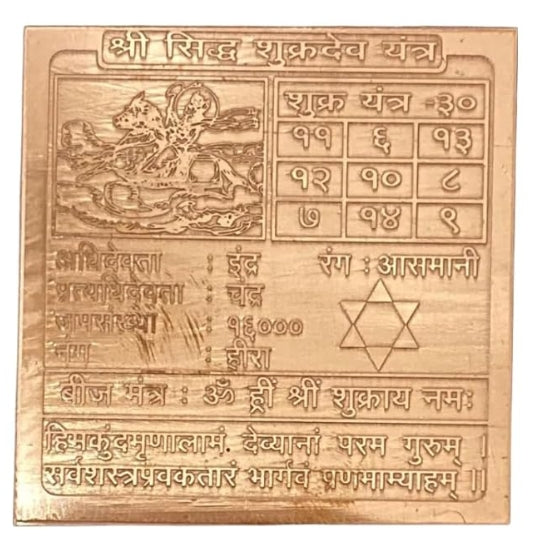 श्री सिद्ध शुक्रदेव यंत्र
शुक्र यंत्र -३०
११ ६ १३
१२ १० ८
७ १४ ९
अधिदेवता : इंद्र रंग : आसमानी
प्रत्यधिदेवता : चंद्र
जपसंख्या : १६०००
नग : हीरा
बीज मंत्र : ॐ ह्रीं श्रीं शुक्राय नमः
हिमकुंदमृणालामं. देव्यानां परम गुरुम् ।
सर्वशस्त्रप्रवकतारं भार्गवं प्रणमाम्याहम् ॥